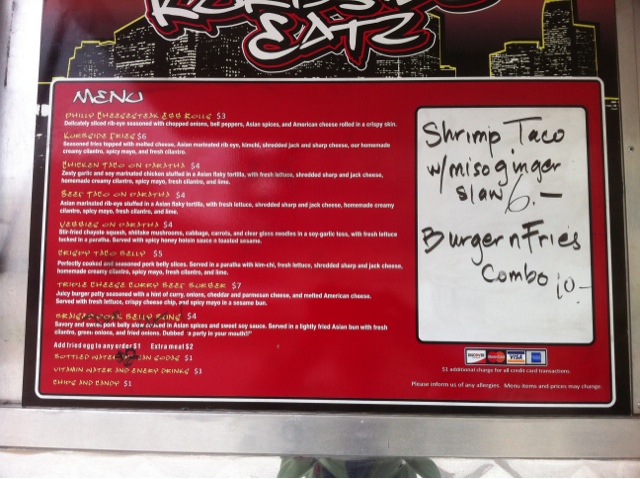 EATZ
MENU
PHILLY CHEEZESTEAK EGG ROLLS $3
Delicately sliced rib-eye seasoned with chopped onions, bell peppers, Asian spices, and American cheese rolled in a crispy skin.
KURBSIDE FRIES $6
Seasoned fries topped with melted cheese, Asian marinated rib eye, kimchi, shredded jack and sharp cheese, our homemade
creamy cilantro, spicy mayo, and fresh cilantro.
CHICKEN TACO ON PARATHA $4
Zesty garlic and soy marinated chicken stuffed in a Asian flaky tortilla, with fresh lettuce, shredded sharp and jack cheese,
homemade creamy cilantro, spicy mayo, fresh cilantro, and lime.
BEEF TACO ON PARATHA $4
Asian marinated rib-eye stuffed in a Asian flaky tortilla, with fresh lettuce, shredded sharp and jack cheese, homemade creamy
cilantro, spicy mayo, fresh cilantro, and lime.
VEGGIES ON PARATHA $4
Stir-fried chayote squash, shiitake mushrooms, cabbage, carrots, and clear glass noodles in a soy-garlic toss, with fresh lettuce
tucked in a paratha. Served with spicy honey hoisin sauce n toasted sesame.
CRISPY TACO BELLY $5
Perfectly cooked and seasoned pork belly slices. Served in a paratha with kim-chi, fresh lettuce, shredded sharp and jack cheese,
homemade creamy cilantro, spicy mayo, fresh cilantro, and lime.
TRIPLE CHEEZE CURRY BEEF BURGER $7
Juicy burger patty seasoned with a hint of curry, onions, cheddar and parmesan cheese, and melted American cheese.
Served with fresh lettuce, crispy cheese chip, and spicy mayo in a sesame bun.
BRAISED PORK BELLY $4
Savory and sweet pork belly slow cooked in Asian spices and sweet soy sauce. Served in a lightly fried Asian bun with fresh
cilantro, green onions, and fried onions. Dubbed "a party in your mouth!!"
Add fried egg to any order $1 Extra meat $2
BOTTLED WATER CAN SODAS $1
VITAMIN WATER AND ENERY DRINKS $3
CHIPS AND CANDY $1
Shrimp Taco
w/miso ginger
slaw 6.-
Burger n Fries
Combo 10-
DISCOVER MasterCard VISA
$1 additional charge for all credit card transactions.
Please inform us of any allergies. Menu items and prices may change.